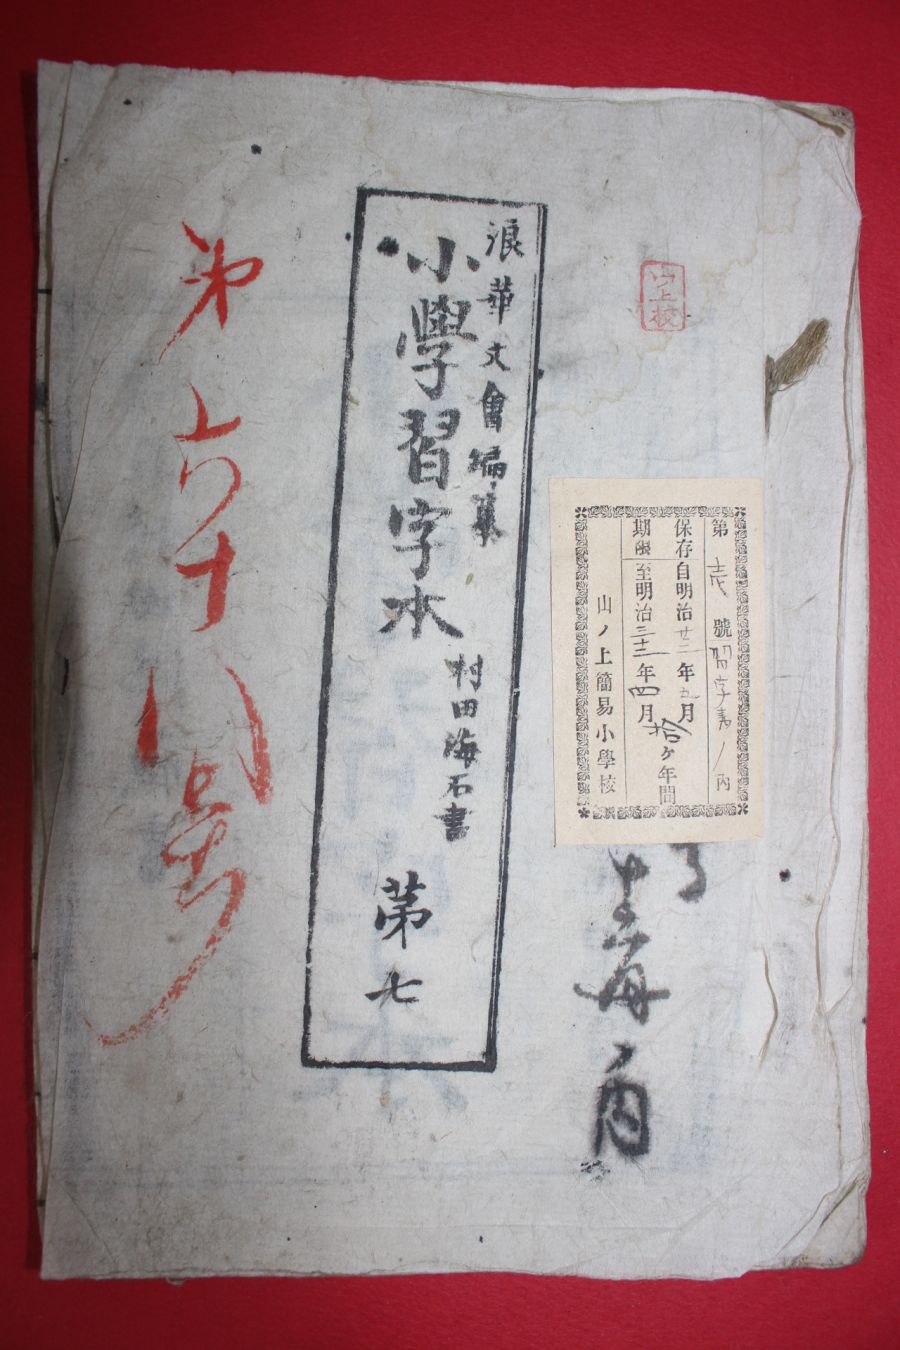 山上校
浪華文會編集
小學習字本
村田海石書
第七
第六十八号
第壱號習字書ノ内
保存
期限
自明治廿二年九月
至明治三十二年四月
拾ケ年間
山ノ上簡易小學校
ノ内